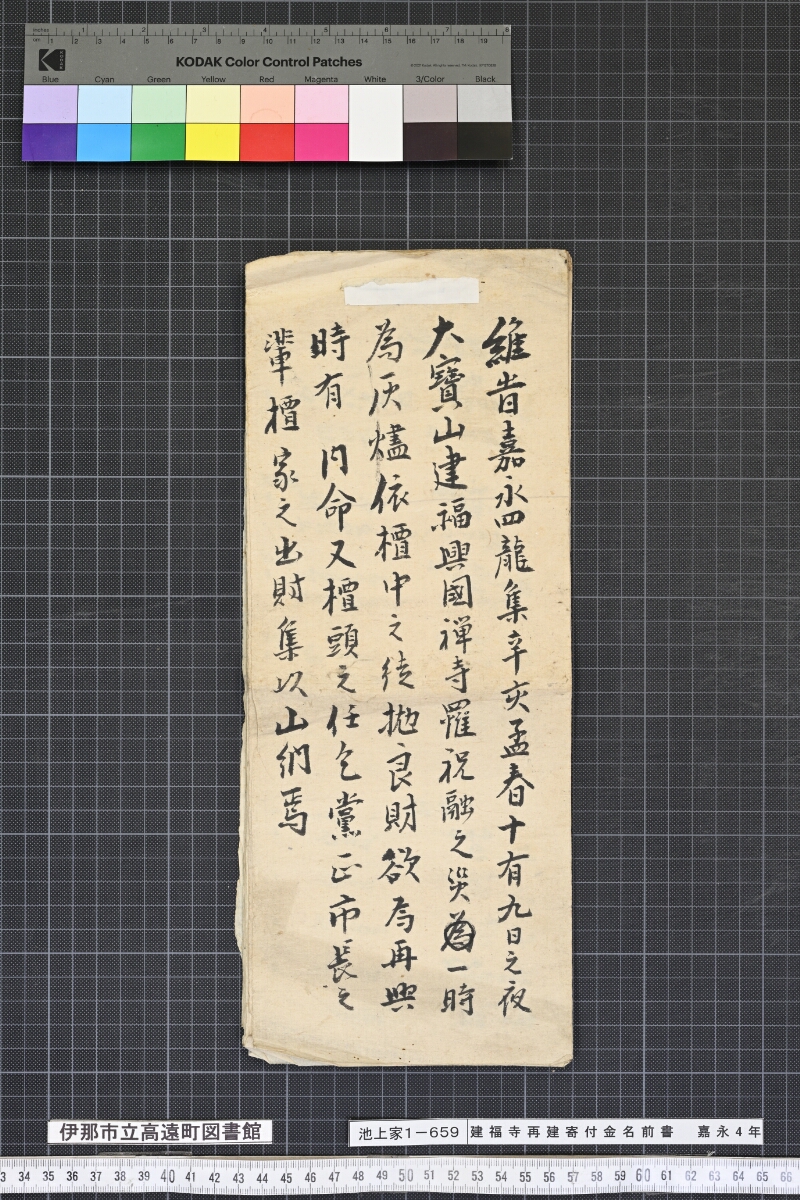 KODAK Color Control Patches
Blue Cyan Green Yellow Red Magenta White 3/Color Black
維昔嘉永四龍集辛亥孟春十有九日之夜
大寶山建福興國禅寺罹祝融之災一時
為灰燼依檀中之徒抛良財欲為再興
時有 内命又檀頭之任乞黨正市長之
輩檀家之出財集以山納焉
伊那市立高遠町図書館
池上家1-659 建福寺再建寄付金名前書 嘉永4年
33 34 35 36 37 38 39 40 41 42 43 44 45 46 47 48 49 50 51 52 53 54 55 56 57 58 59 60 61 62 63 64 65 66